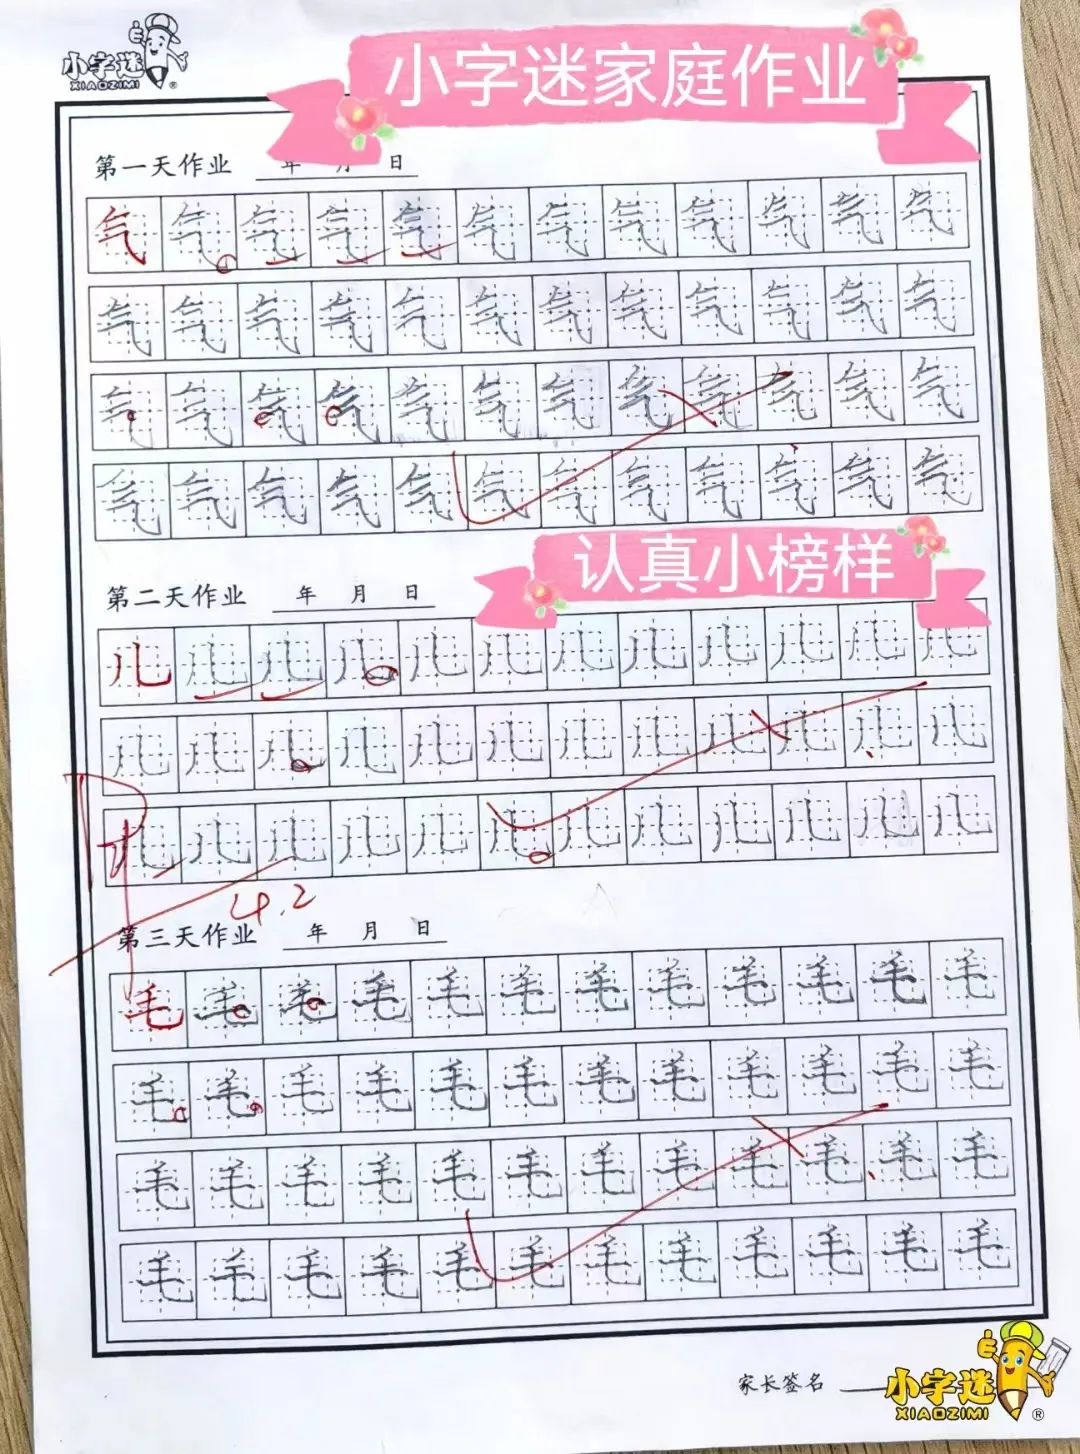 小字迷
XIAOZIMI®
小字迷家庭作业
第一天作业 年 月 日
气 气 气 气 气 气 气 气 气 气 气 气
气 气 气 气 气 气 气 气 气 气 气 气
气 气 气 气 气 气 气 气 气 气 气 气
气 气 气 气 气 气 气 气 气 气 气 气
认真小榜样
第二天作业 年 月 日
儿 儿 儿 儿 儿 儿 儿 儿 儿 儿 儿 儿
儿 儿 儿 儿 儿 儿 儿 儿 儿 儿 儿 儿
儿 儿 儿 儿 儿 儿 儿 儿 儿 儿 儿 儿
4.2
第三天作业 年 月 日
毛 毛 毛 毛 毛 毛 毛 毛 毛 毛 毛 毛
毛 毛 毛 毛 毛 毛 毛 毛 毛 毛 毛 毛
毛 毛 毛 毛 毛 毛 毛 毛 毛 毛 毛 毛
毛 毛 毛 毛 毛 毛 毛 毛 毛 毛 毛 毛
家长签名
小字迷
XIAOZIMI®